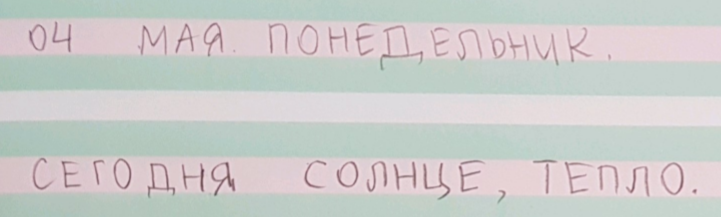 04 МАЯ. ПОНЕДЕЛЬНИК.
СЕГОДНЯ СОЛНЦЕ, ТЕПЛО.